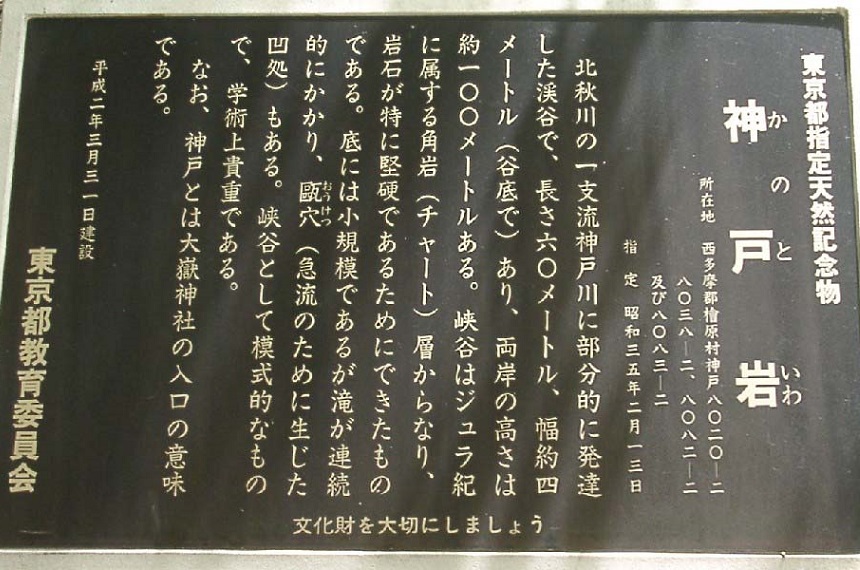 東京都指定天然記念物
神戸岩
かのといわ
所在地 西多摩郡檜原村神戸八〇二〇―二
八〇三八―二、八〇八二―二
及び八〇八三―二
指定 昭和三五年二月一三日
北秋川の一支流神戸川に部分的に発達
した渓谷で、長さ六〇メートル、幅約四
メートル（谷底で）あり、両岸の高さは
約一〇〇メートルある。峡谷はジュラ紀
に属する角岩（チャート）層からなり、
岩石が特に堅硬であるためにできたもの
である。底には小規模であるが滝が連続
的にかかり、甌穴（急流のために生じた
おうけつ
凹処）もある。峡谷として模式的なもの
で、学術上貴重である。
なお、神戸とは大嶽神社の入口の意味
である。
平成二年三月三一日建設
東京都教育委員会
文化財を大切にしましょう